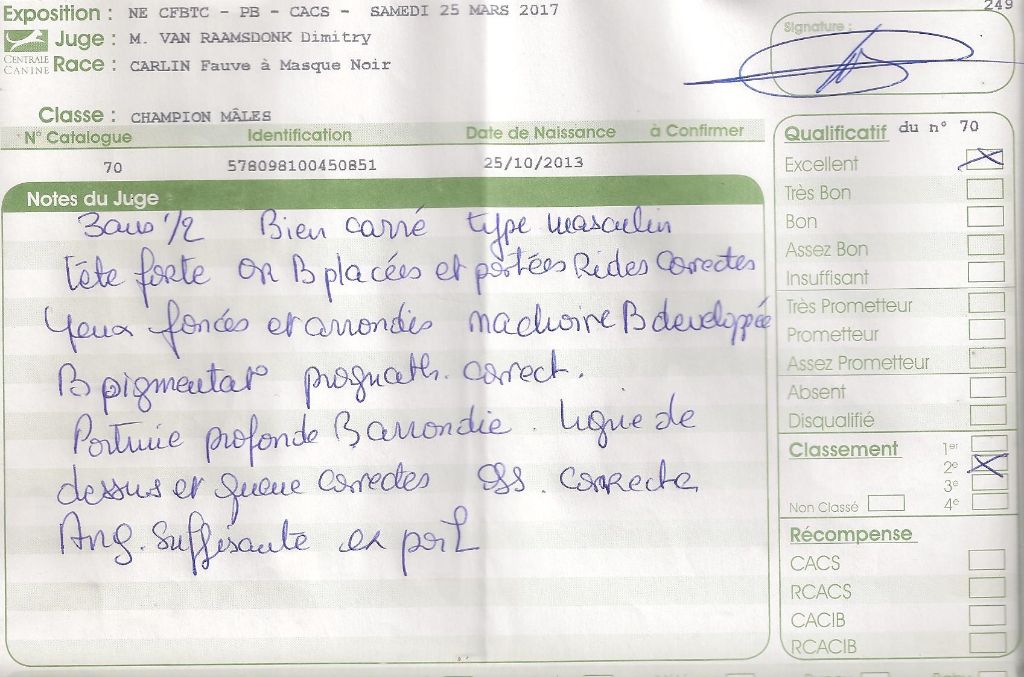 249
Exposition : NE CFBTC - PB - CACS - SAMEDI 25 MARS 2017
Signature :
Juge : M. VAN RAAMSDONK Dimitry
CENTRALE CANINE
Race : CARLIN Fauve à Masque Noir
Classe : CHAMPION MÂLES
N° Catalogue Identification Date de Naissance à Confirmer
70 578098100450851 25/10/2013
Notes du Juge
3 ans 1/2 Bien carré type masculin
Tête forte OR B placées et portées Rides correctes
Yeux foncés et arrondis machoire B developpée
B pigmentat° prognath. correct.
Poitrine profonde B arrondie. ligne de
dessus et queue correctes Oss. correcte
Ang. suffisante ex poil
Qualificatif du n° 70
Excellent
Très Bon
Bon
Assez Bon
Insuffisant
Très Prometteur
Prometteur
Assez Prometteur
Absent
Disqualifié
Classement 1er
2e
3e
Non Classé 4e
Récompense
CACS
RCACS
CACIB
RCACIB